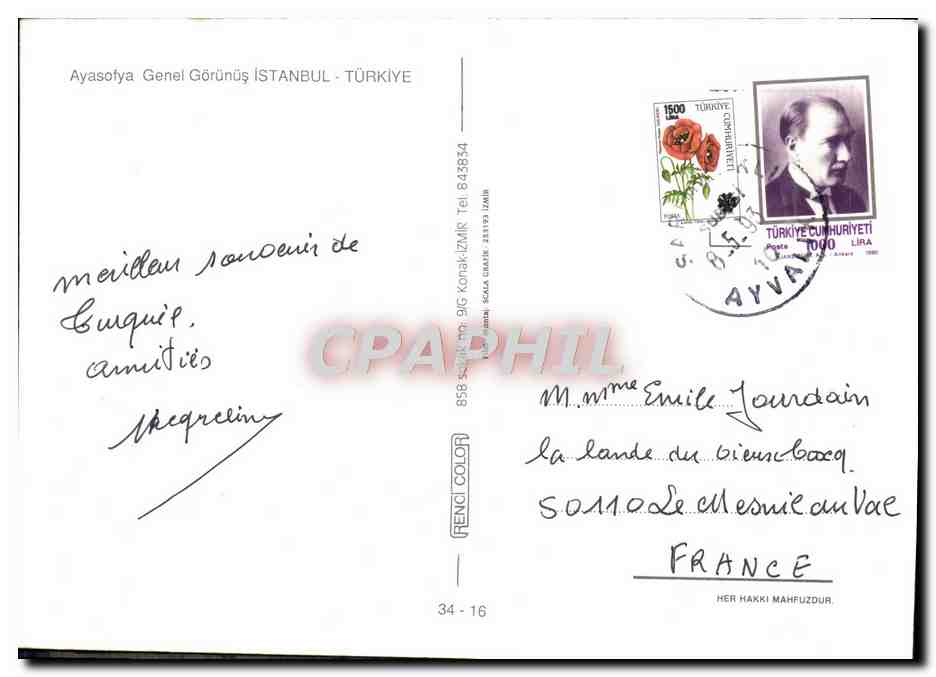 Ayasofya Genel Görünüş İSTANBUL - TÜRKİYE
meilleur souvenir de
Turquie.
amitiés
Jacqueline
858 Sokak no: 9/G Konak-İZMİR Tel: 843834
SCALA GRAFİK - 253193 İZMİR
RENCİ COLOR
34 - 16
1500
LİRA
TÜRKİYE CUMHURİYETİ
TÜRKİYE CUMHURİYETİ
Posta 1000 LİRA
8.5.93
10
AYVALIK
CPAPHIL
M. Mme Emile Jourdain
la lande du
50110 Le Mesnil au Val
FRANCE
HER HAKKI MAHFUZDUR.